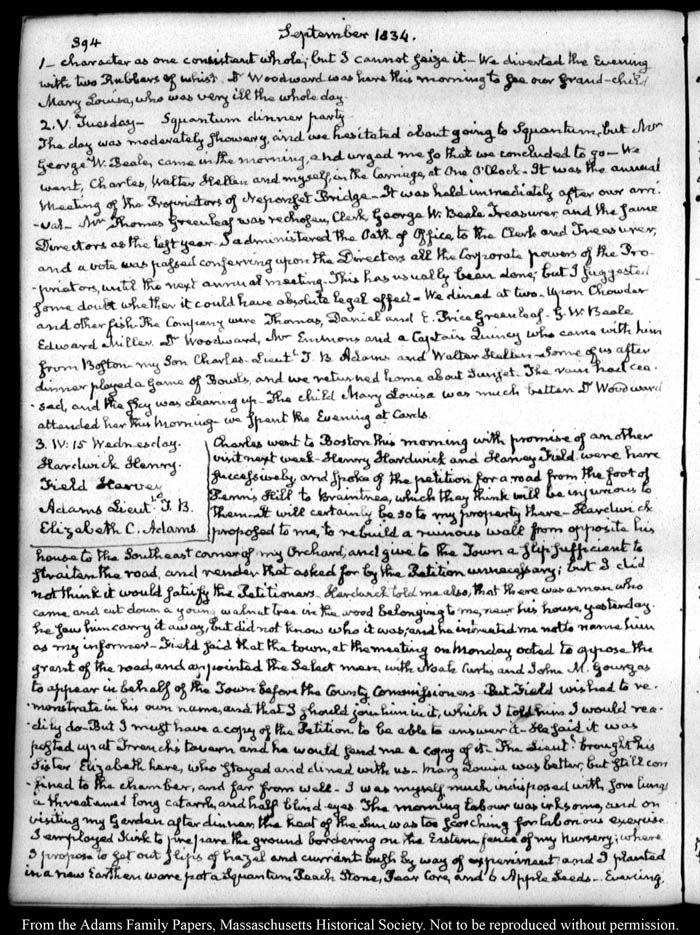 394
September 1834.
1_ character as one consistent whole; but I cannot seize it_ We diverted the Evening
with two Rubbers of whist. Dr Woodward was here this morning to see our Grand-child
Mary Louisa, who was very ill the whole day.
2. V. Tuesday_ Squantum dinner party.
The day was moderately showery, and we hesitated about going to Squantum, but Mr
George W. Beale, came in the morning, and urged me so that we concluded to go_ We
went, Charles, Walter Hellen and myself, in the Carriage, at One O'Clock_ It was the annual
Meeting of the Proprietors of Neponset Bridge_ It was held immediately after our arri-
-val_ Mr Thomas Greenleaf was rechosen, Clerk, George W. Beale Treasurer, and the same
Directors as the last year. I administered the Oath of Office, to the Clerk and Treasurer,
and a vote was passed conferring upon the Directors all the Corporate powers of the Pro-
-prietors, until the next annual meeting. This has usually been done; but I suggested
some doubt whether it could have absolute legal effect_ We dined at two_ Upon Chowder
and other fish. The Company were Thomas, Daniel and E. Price Greenleaf_ G. W. Beale
Edward Miller. Dr Woodward, Mr Emmons and a Captain Quincy who came with him
from Boston_ my Son Charles_ Lieut. T. B. Adams and Walter Hellen_ Some of us after
dinner played a Game of Bowls, and we returned home about Sunset. The rain had cea-
-sed, and the sky was clearing up_ The child Mary Louisa was much better. Dr Woodward
attended her this Morning_ we spent the Evening at Cards.
3. IV:15 Wednesday.
Hardwick Henry.
Field Harvey
Adams Lieut. T. B.
Elizabeth C. Adams.
Charles went to Boston this morning with promise of another
visit next week_ Henry Hardwick and Harvey Field were here
successively and spoke of the petition for a road from the foot of
Penn's Hill to Braintree, which they think will be injurious to
them. It will certainly be so to my property there_ Hardwick
proposed to me, to rebuild a ruinous wall from opposite his
house to the Southeast corner of my Orchard, and give to the Town a slip sufficient to
straiten the road, and render that asked for by the Petition unnecessary; but I did
not think it would satisfy the Petitioners_ Hardwick told me also, that there was a man who
came and cut down a young walnut tree in the wood belonging to me, near his house, yesterday.
he saw him carry it away, but did not know who it was; and he intreated me not to name him
as my informer_ Field said that the town, at the meeting on Monday voted to oppose the
grant of the road, and appointed the Select men, with Noah Curtis and John M. Gourgas
to appear in behalf of the Town before the County Commissioners_ But Field wished to re-
-monstrate in his own name, and that I should join him in it, which I told him I would rea-
-dily do_ But I must have a copy of the Petition, to be able to answer it_ He said it was
posted up at French's tavern and he would send me a copy of it_ The Lieut. brought his
Sister Elizabeth here, who stayed and dined with us_ Mary Louisa was better, but still con
-fined to the chamber, and far from well_ I was myself much indisposed with, sore lungs
a threatened long catarrh, and half blind eyes The morning labour was irksome, and on
visiting my Garden after dinner, the heat of the Sun was too scorching for laborious exercise.
I employed Kirk to prepare the ground bordering on the Eastern fence of my Nursery; where
I propose to set out slips of hazel and currant bush by way of experiment and I planted
in a new Earthen ware pot a Squantum Peach Stone, Pear Core, and 6 Apple Seeds_ Evening.
From the Adams Family Papers, Massachusetts Historical Society. Not to be reproduced without permission.